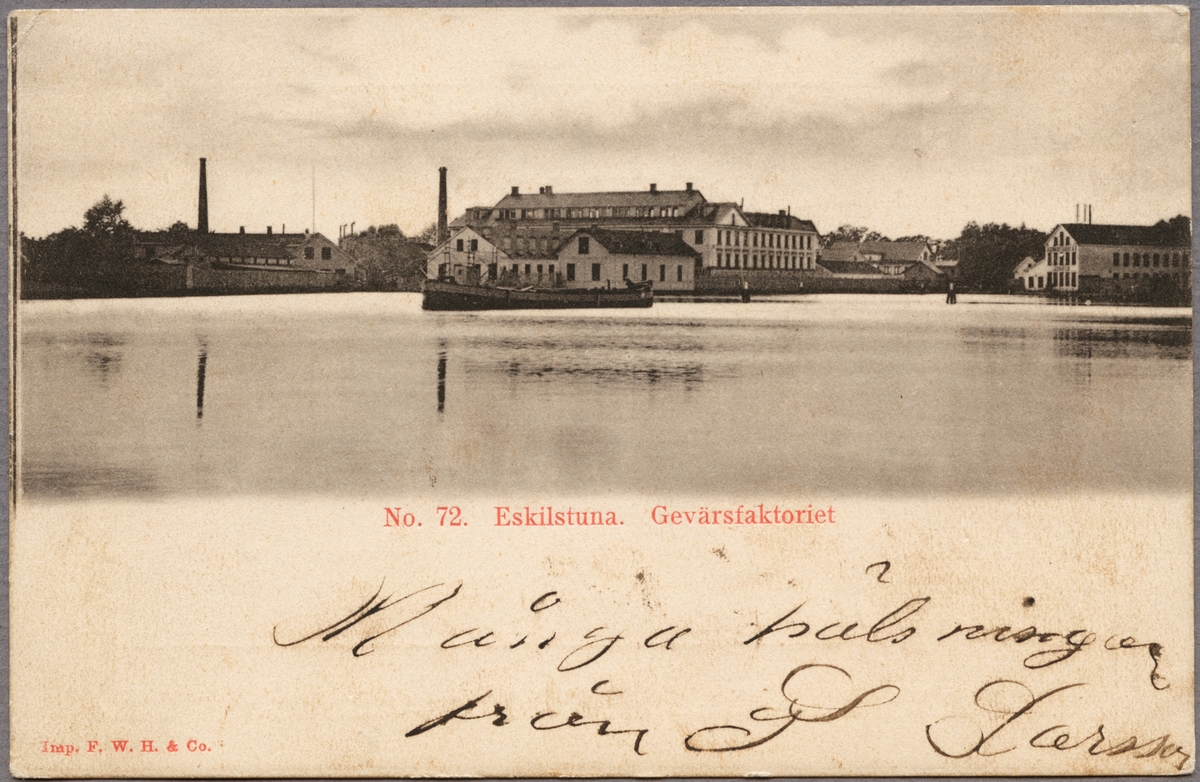 No. 72. Eskilstuna. Gevärsfaktoriet
Många hälsningar
från S Larsson
Imp. F. W. H. & Co.